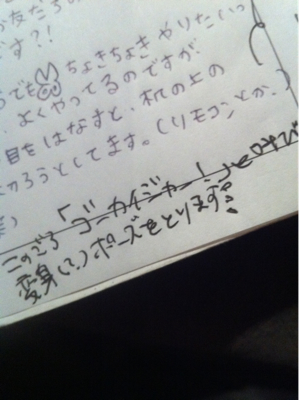 お友だちの
です?!
うでも ちょきちょき やりたいっ
、よくやってるのですが
目をはなすと、机の上の
切ろうとしてます。(リモコンとか)
このごろ「ゴーカイジャー!」と叫び
変身(?)ポーズをとります。